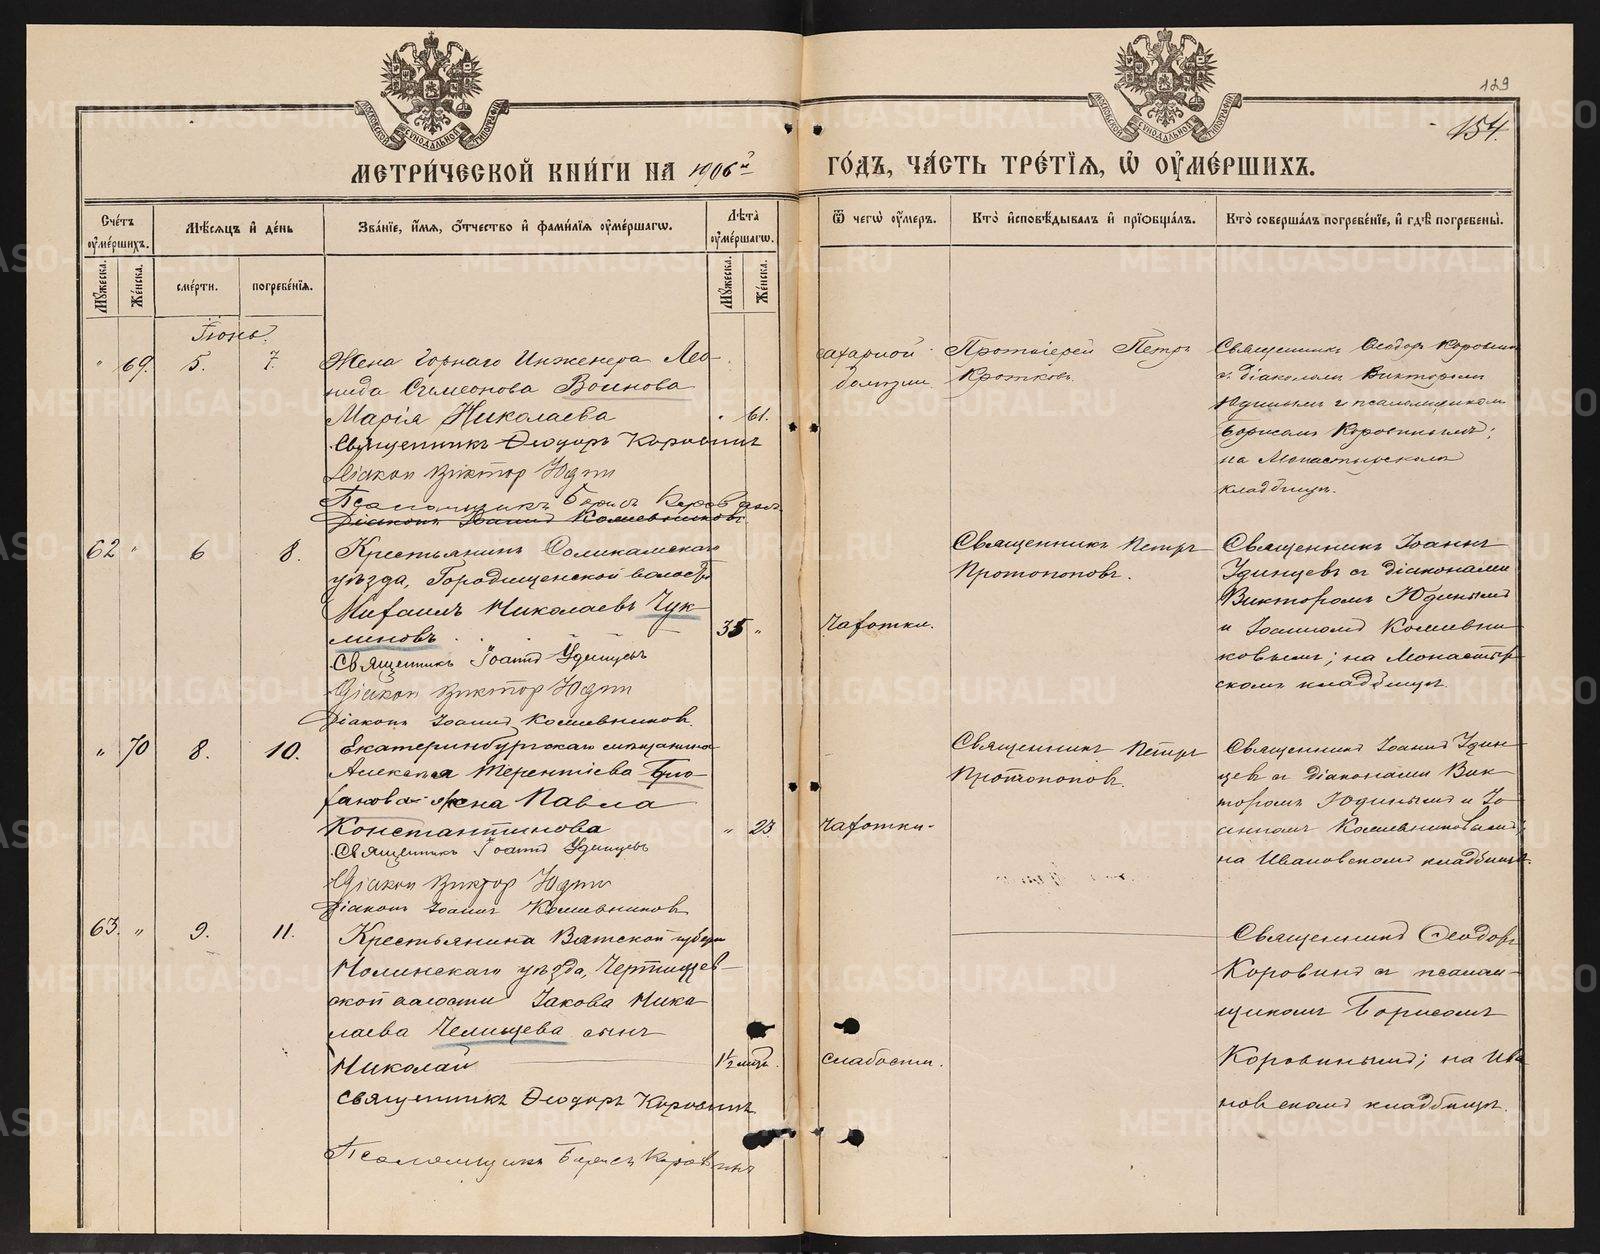 129
154.
МЕТРИ́ЧЕСКОЙ КНИ́ГИ НА 1906й ГО́ДЪ, ЧА́СТЬ ТРЕ́ТІЯ, Ѿ ОУМЕ́РШИХЪ.
Сче́тъ оумершихъ.
Мѣсяцъ и де́нь
Зва́ніе, и́мя, о́тчество и фами́лія оуме́ршагѡ.
Лѣта̀ оуме́ршагѡ.
Ѿ чегѡ̀ оу́меръ.
Кто̀ исповѣ́дывалъ и пріѡбща́лъ.
Кто̀ соверша́лъ погребе́ніе, и гдѣ̀ погребены̀.
Мужеска.
Же́нска.
сме́рти.
погребе́нія.
Мужеска.
Же́нска.
Іюнь.
" 69. 5. 7.
Жена Горнаго Инженера Лео-
нида Симеонова Воинова
Марія Николаева
61.
Священникъ Ѳеодоръ Коровинъ
Діаконъ Викторъ Юдинъ
Псаломщикъ Борисъ Коровинъ
Діаконъ Іоаннъ Кожевниковъ
сахарной
болѣзни
Протоіерей Петръ
Кротковъ.
Священникъ Ѳеодоръ Коровинъ
съ діакономъ Викторомъ
Юдинымъ и псаломщикомъ
Борисомъ Коровинымъ;
на Монастырскомъ
кладбищѣ.
62 " 6 8.
Крестьянинъ Соликамскаго
уѣзда, Городищенской волости
Михаилъ Николаевъ Чук-
линовъ
35 "
Священникъ Іоаннъ Удинцевъ
Діаконъ Викторъ Юдинъ
Діаконъ Іоаннъ Кожевниковъ.
Чахотки.
Священникъ Петръ
Протопоповъ.
Священникъ Іоаннъ
Удинцевъ съ діаконами
Викторомъ Юдинымъ
и Іоанномъ Кожевни-
ковымъ; на Монастыр-
скомъ кладбищѣ.
" 70 8. 10.
Екатеринбургскаго мѣщанина
Алексѣя Терентіева
жена Павла
Константинова
" 23
Священникъ Іоаннъ Удинцевъ
Діаконъ Викторъ Юдинъ
Діаконъ Іоаннъ Кожевниковъ
Чахотки.
Священникъ Петръ
Протопоповъ.
Священникъ Іоаннъ Удин-
цевъ съ діаконами Вик-
торомъ Юдинымъ и Іо-
анномъ Кожевниковымъ;
на Ивановскомъ кладбищѣ.
63. " 9. 11.
Крестьянина Вятской губерн
Нолинскаго уѣзда, Чертищев-
ской волости Іакова Нико
лаева Челищева сынъ
Николай
1½ мѣс.
Священникъ Ѳеодоръ Коровинъ
Псаломщикъ Борисъ Коровинъ
слабости.
Священникъ Ѳеодоръ
Коровинъ съ псалом-
щикомъ Борисомъ
Коровинымъ; на Ива
новскомъ кладбищѣ.
METRIKI.GASO-URAL.RU